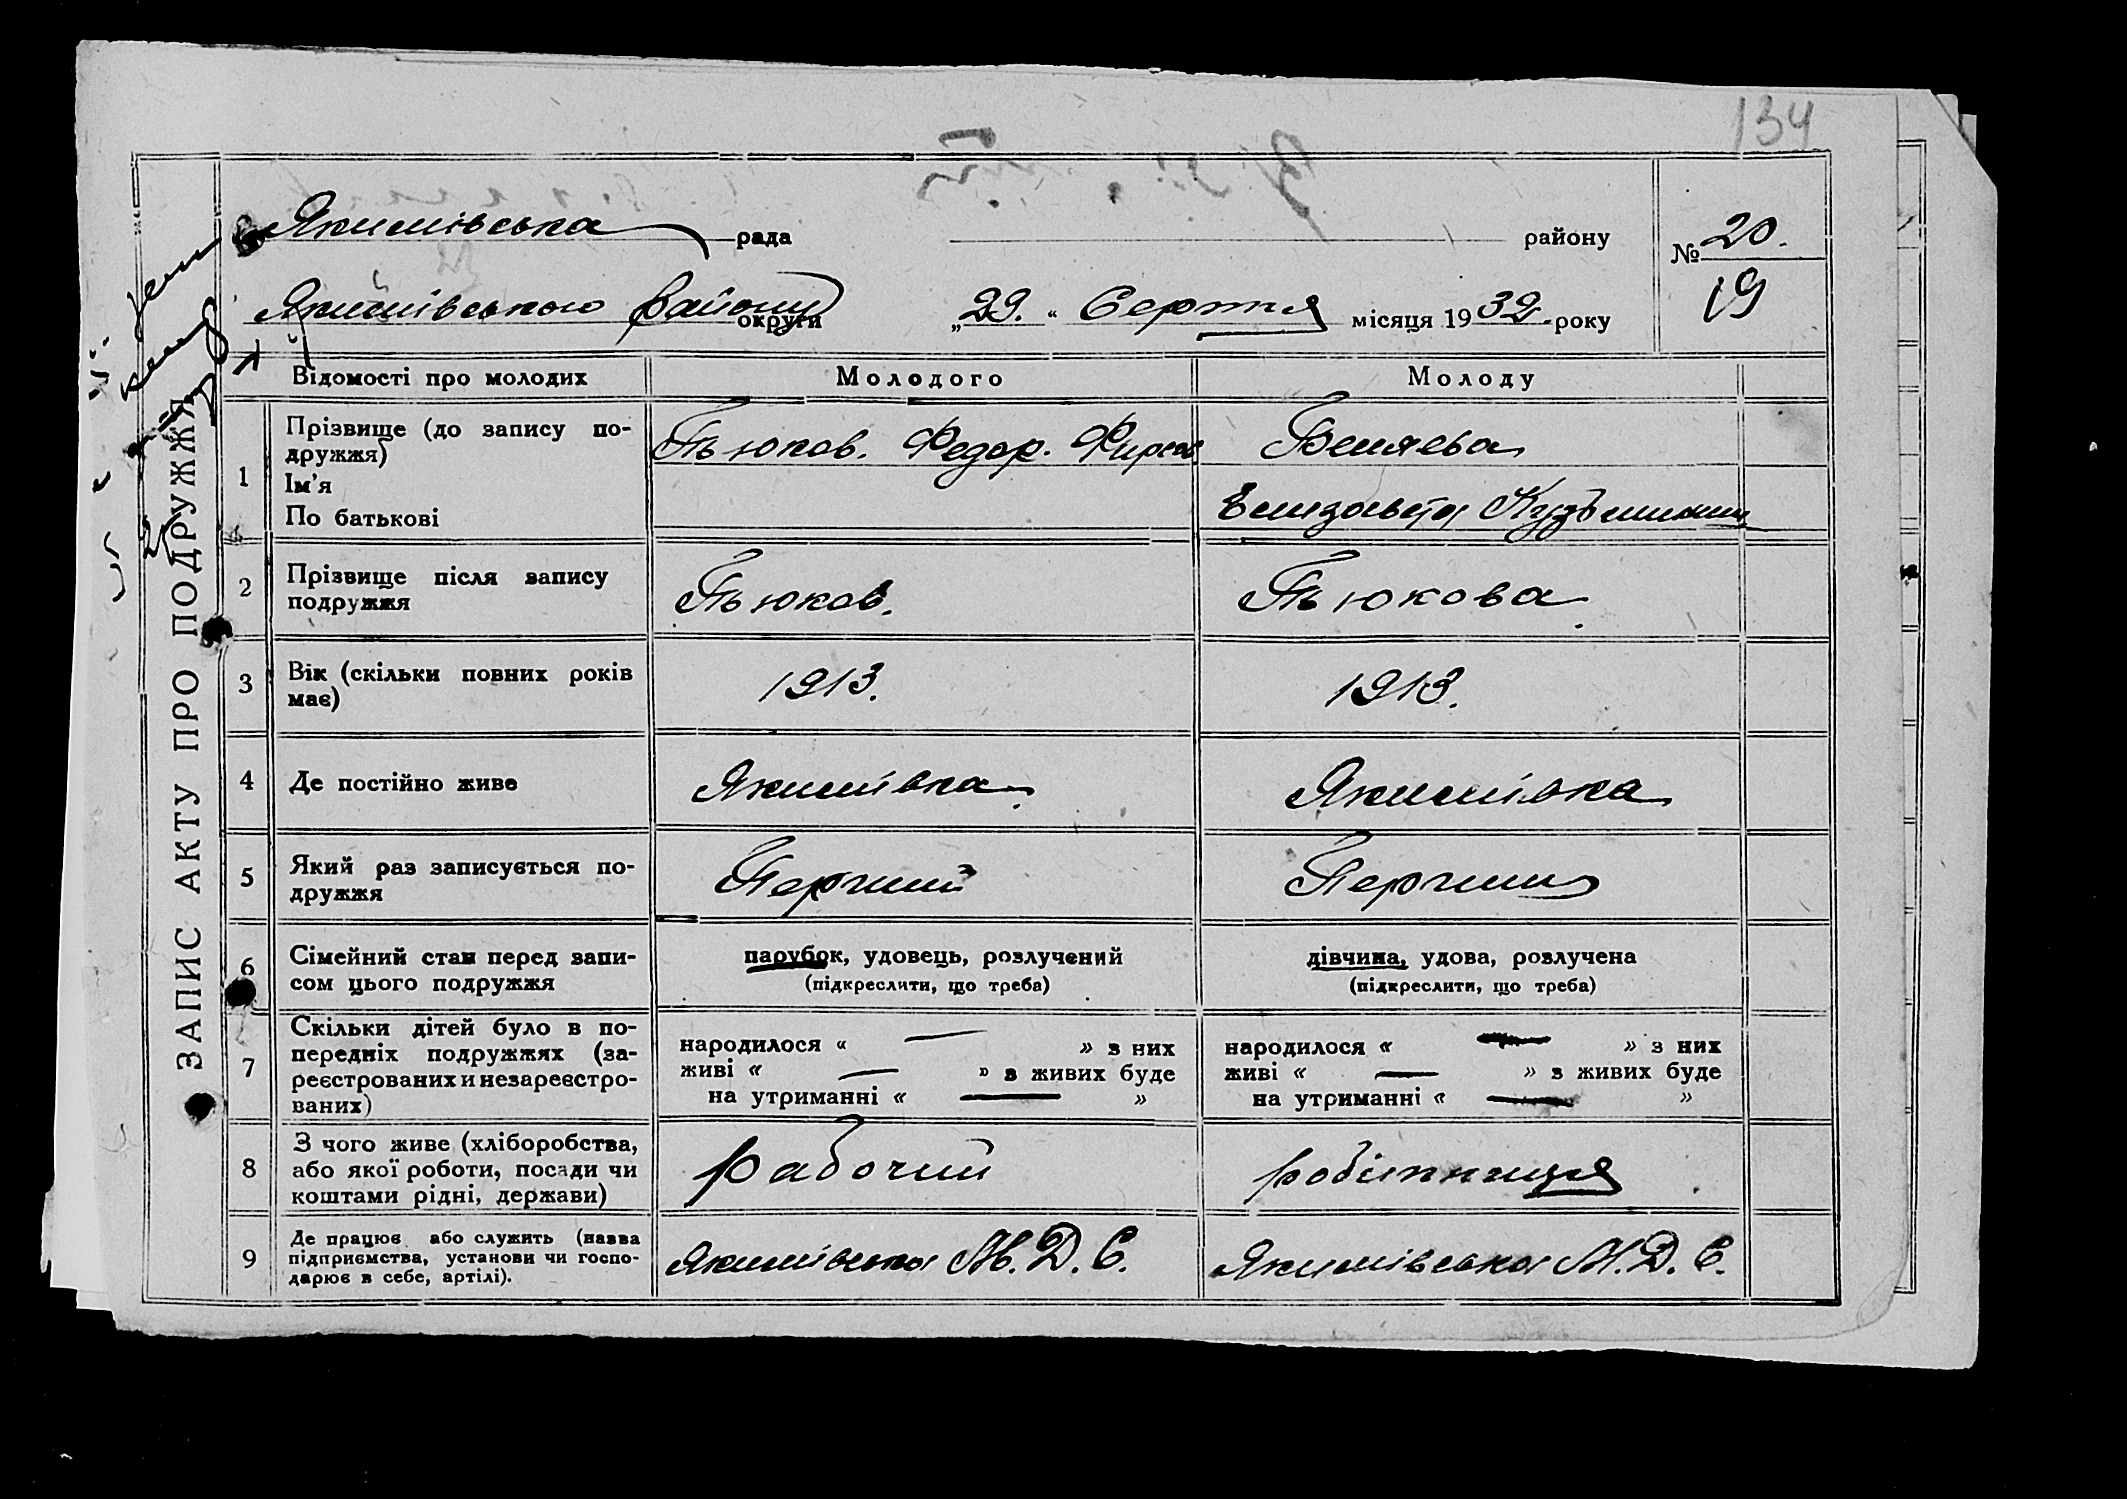 134
Якимівська рада району
№ 20.
Якимівського району округи „29.“ Серпня місяця 1932 року
19
ЗАПИС АКТУ ПРО ПОДРУЖЖЯ
Відомості про молодих Молодого Молоду
1 Прізвище (до запису по-
дружжя)
Ім'я
По батькові
Пьюков. Федор. Фирсов
Беляева
Елизавета Кузьминишна
2 Прізвище після запису
подружжя
Пьюков.
Пьюкова.
3 Вік (скільки повних років
має)
1913.
1913.
4 Де постійно живе
Якимівка
Якимівка
5 Який раз записується по-
дружжя
Перчий
Перчий
6 Сімейний стан перед запи-
сом цього подружжя
парубок, удовець, розлучений
(підкреслити, що треба)
дівчина, удова, розлучена
(підкреслити, що треба)
7 Скільки дітей було в по-
передніх подружжях (за-
реєстрованих и незареєстро-
ваних)
народилося « — » з них
живі « — » з живих буде
на утриманні « — »
народилося « — » з них
живі « — » з живих буде
на утриманні « — »
8 З чого живе (хліборобства,
або якої роботи, посади чи
коштами рідні, держави)
рабочий
робітниця
9 Де працює або служить (назва
підприємства, установи чи госпо-
дарює в себе, артілі).
Якимівська М. Д. С.
Якимівська М. Д. С.